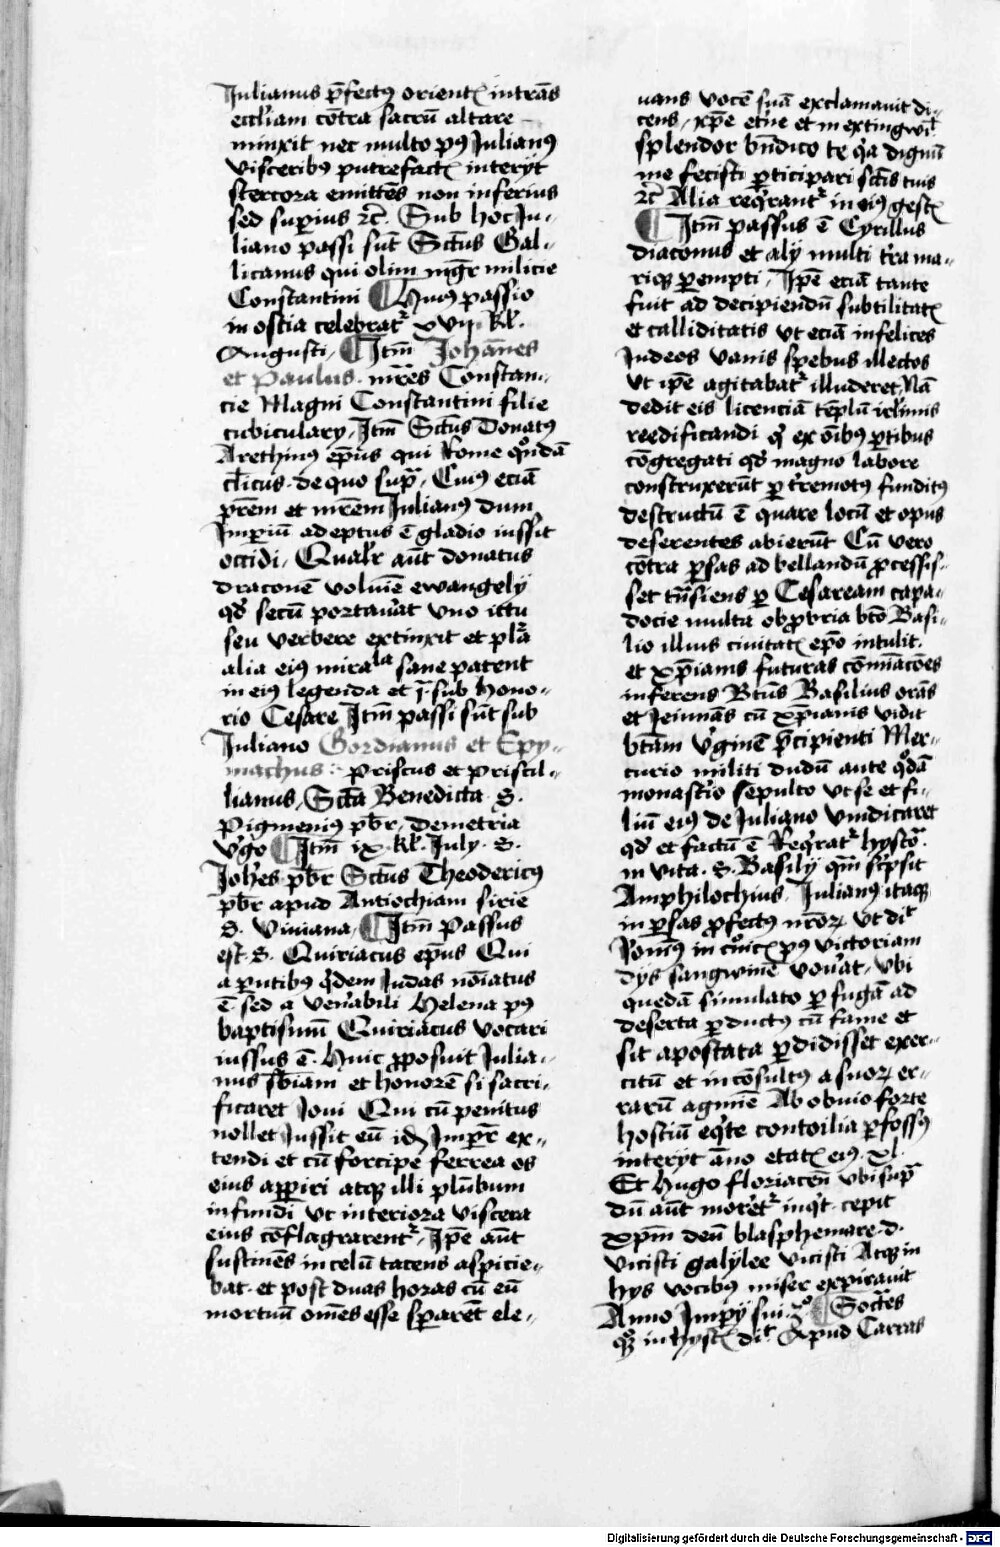 Julianus p̄fectꝰ orientꝭ intrās
eccl̄iam cōtra sacrū altare
minxit nec multo pꝰ Julianꝰ
visceribꝰ putrefactꝭ interijt
stercora emittēs non inferius
sed superius ⁊c̄. Sub hoc Ju-
liano passi sūt Sc̄tus Gal-
licanus qui olim mgr̄ milicie
Constantini ¶ Huiꝰ passio
in ostia celebrat᷑ xvij. kl̄.
Augusti / ¶ Itm̄ Johānes
et Paulus. mr̄es Constan-
cie Magni Constantini filie
cubicularij / Itm̄ Sc̄tus Donatꝰ
Arethinꝰ ep̄us qui Rome qͦndā
cl̄icus. de quo supͣ / Cuiꝰ eciā
pr̄em et mr̄em Julianꝰ dum
Imꝑiū adeptus ē gladio iussit
occidi / Qualr̄ aūt donatus
draconē volmīe ewangelij
qd̄ secū portau̓at vno ictu
seu verbere extinxit et plͣa
alia eiꝰ miraˡᵃ sane patent
in eiꝰ legenda et jͣ sub hono-
rio Cesare Itm̄ passi sūt sub
Juliano Gordianus et Epy-
machus : priscus et priscil-
lianus / Sc̄ta Benedicta. S.
Pigmeniꝰ pb̄r / Demetria
v̓go ¶ Itm̄ ix. kl̄. July. S.
Joh̓es pb̄r Sc̄tus Theodericꝰ
pb̄r apud Antiochiam sirie
S. Viuiana / ¶ Itm̄ Passus
est. S. Quiriacus ep̄us Qui
a ꝑntibꝰ qͥdem Judas nōiatus
ē sed a ven̓abili Helena pꝰ
baptismū Quiriacus vocari
iussus ē. Huic ꝓposuit Julia-
nus sb̄iam et honorē si sacri-
ficaret Joui Qui cū penitus
nollet Jussit eū idē Imꝑr̄ ex-
tendi et cū forcipe ferrea os
eius apꝑiri atqꝫ illi plūbum
infundi vt interiora viscera
eius cōflagrarent᷑ / Ip̄e aūt
sustinēs in celū tacens aspicie-
bat. et post duas horas cū eū
mortuū om̄es esse sꝑarēt ele-
uans vocē suā exclamauit di-
cens / xp̄e et̓ne et inextingwiᵇˡ
splendor bn̄dico te qͥa dignū
me fecisti ꝑticipari sc̄tis tuis
⁊c̄ Alia reqͥrant᷑ in eiꝰ gestꝭ
¶ Itm̄ passus ē Cyrillus
diaconus et alij multi t̓ra ma-
riqꝫ ꝑempti / Ip̄e eciā tante
fuit ad decipiendū subtilitatꝭ
et calliditatis vt eciā infelices
Judeos vanis spebus illectos
vt ip̄e agitabat᷑ illuderet / Nā
dedit eis licenciā tēplū ir̄limis
reedificandi qͥ ex oībꝰ ꝑtibus
cōgregati qd̄ magno labore
construxerūt ꝑ t̓remotꝰ funditꝰ
destructū ē quare locū et opus
deserentes abierūt Cū vero
cōtra ꝑsas ad bellandū ꝓcessis-
set tn̄siens ꝑ Cesaream capa-
docie multa obꝓbria bt̄o Basi-
lio illius ciuitatꝭ ep̄o intulit.
et xp̄ianis futuras cōmīacōes
inferens Bt̄us Basilius orās
et Jeiunās cū xp̄ianis vidit
bt̄am v̓ginē p̄cipienti Mer-
curio militi dudū ante qͦdā
monast̓io sepulto vt se et fi-
liū eiꝰ de Juliano vindicaret
qd̄ et factū ē Reqͥrat᷑ hystoͬ.
in vita. S. Basilij qm̄ scͥpsit
Amphilochius. Julianꝰ itaqꝫ
in ꝑsas ꝓfectꝰ nr̄oꝝ vt dīt
Jonīꝰ in cͦnicꝭ pꝰ victoriam
dijs sangwinē vou̓at / vbi
quedā simulato ꝑ fugā ad
deserta ꝑductꝰ cū fame et
sit apostata ꝑdidisset exer-
citū et incōsultꝰ a suoꝝ er-
rarū agmīe Ab obuio forte
hostiū eqͥte contoilia ꝑfossꝰ
interijt āno etatꝭ eiꝰ. xl.
Et Hugo floriaceñ vbi supͣ
dū aūt moret᷑ inqͥt. cepit
xp̄m deū blasphemare. d.
vicisti galylee vicisti Atqꝫ in
hijs vocibꝰ miser expirauit
Anno Imꝑij sui. 2º ¶ Soct̓es
qͦqꝫ in hystꝭ dīt Apud Carras